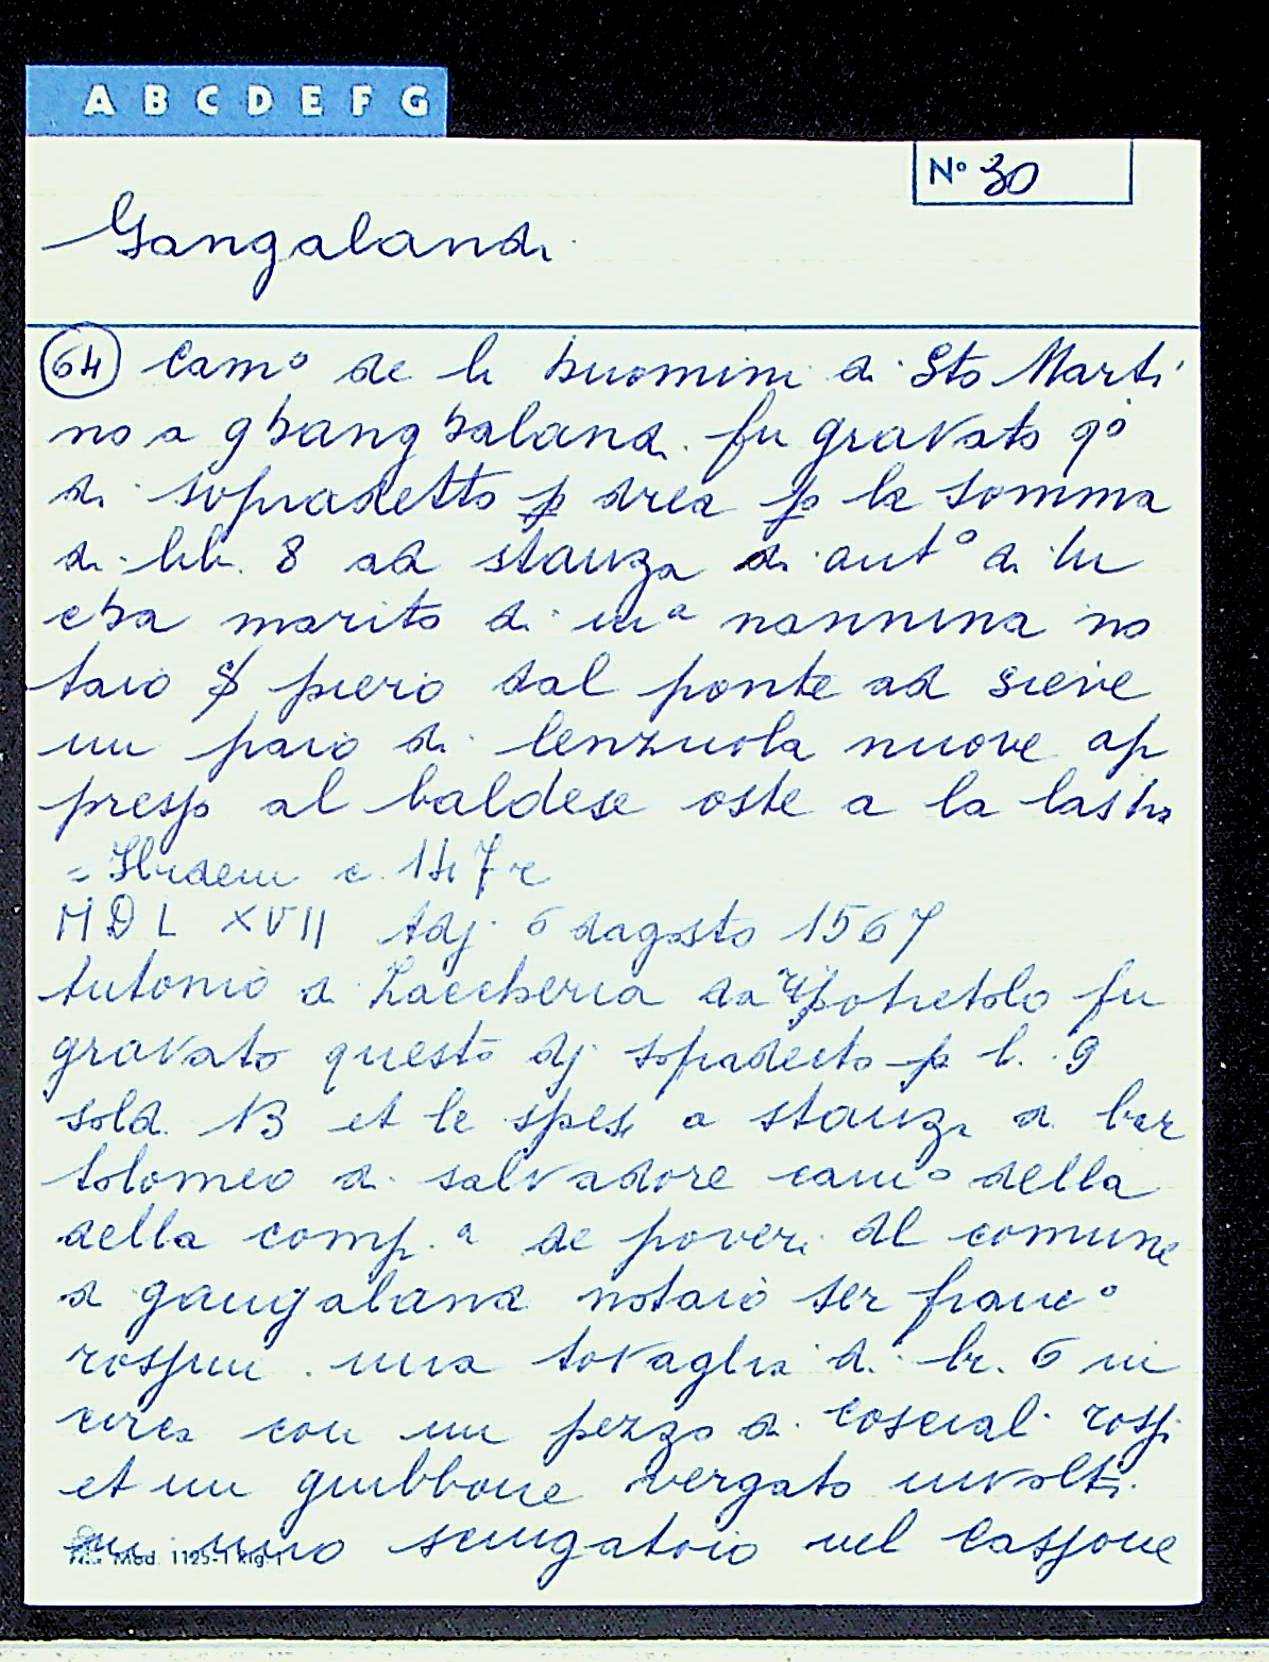 A B C D E F G
N° 30
Gangalandi
64 Camo de li huomini di Sto Marti
no a ghanghalandi fu gravato qo
di sopradetto p drea p la somma
di lib. 8 ad stanza di anto di lu
cha marito di ma nannina no
taio piero dal ponte ad sieve
un paio di lenzuola nuove ap
presso al baldese oste a la lastra
= Ibidem c. 147 r
MDL XVII Adj 6 dagosto 1567
Antonio di Zaccheria da fu
gravato questo dj sopradecto p l. 9
sold. 13 et le spese a stanza di bar
tolomeo di salvadore camo della
della comp.a de poveri del comune
di gangalandi notaio ser franco
rospini una tovaglia di br. 6 in
circa con un pezzo di cosciali rossi
et un giubbone vergato involti
in uno sciugatoio nel cassone
Mod. 1125-1 Rig. 1